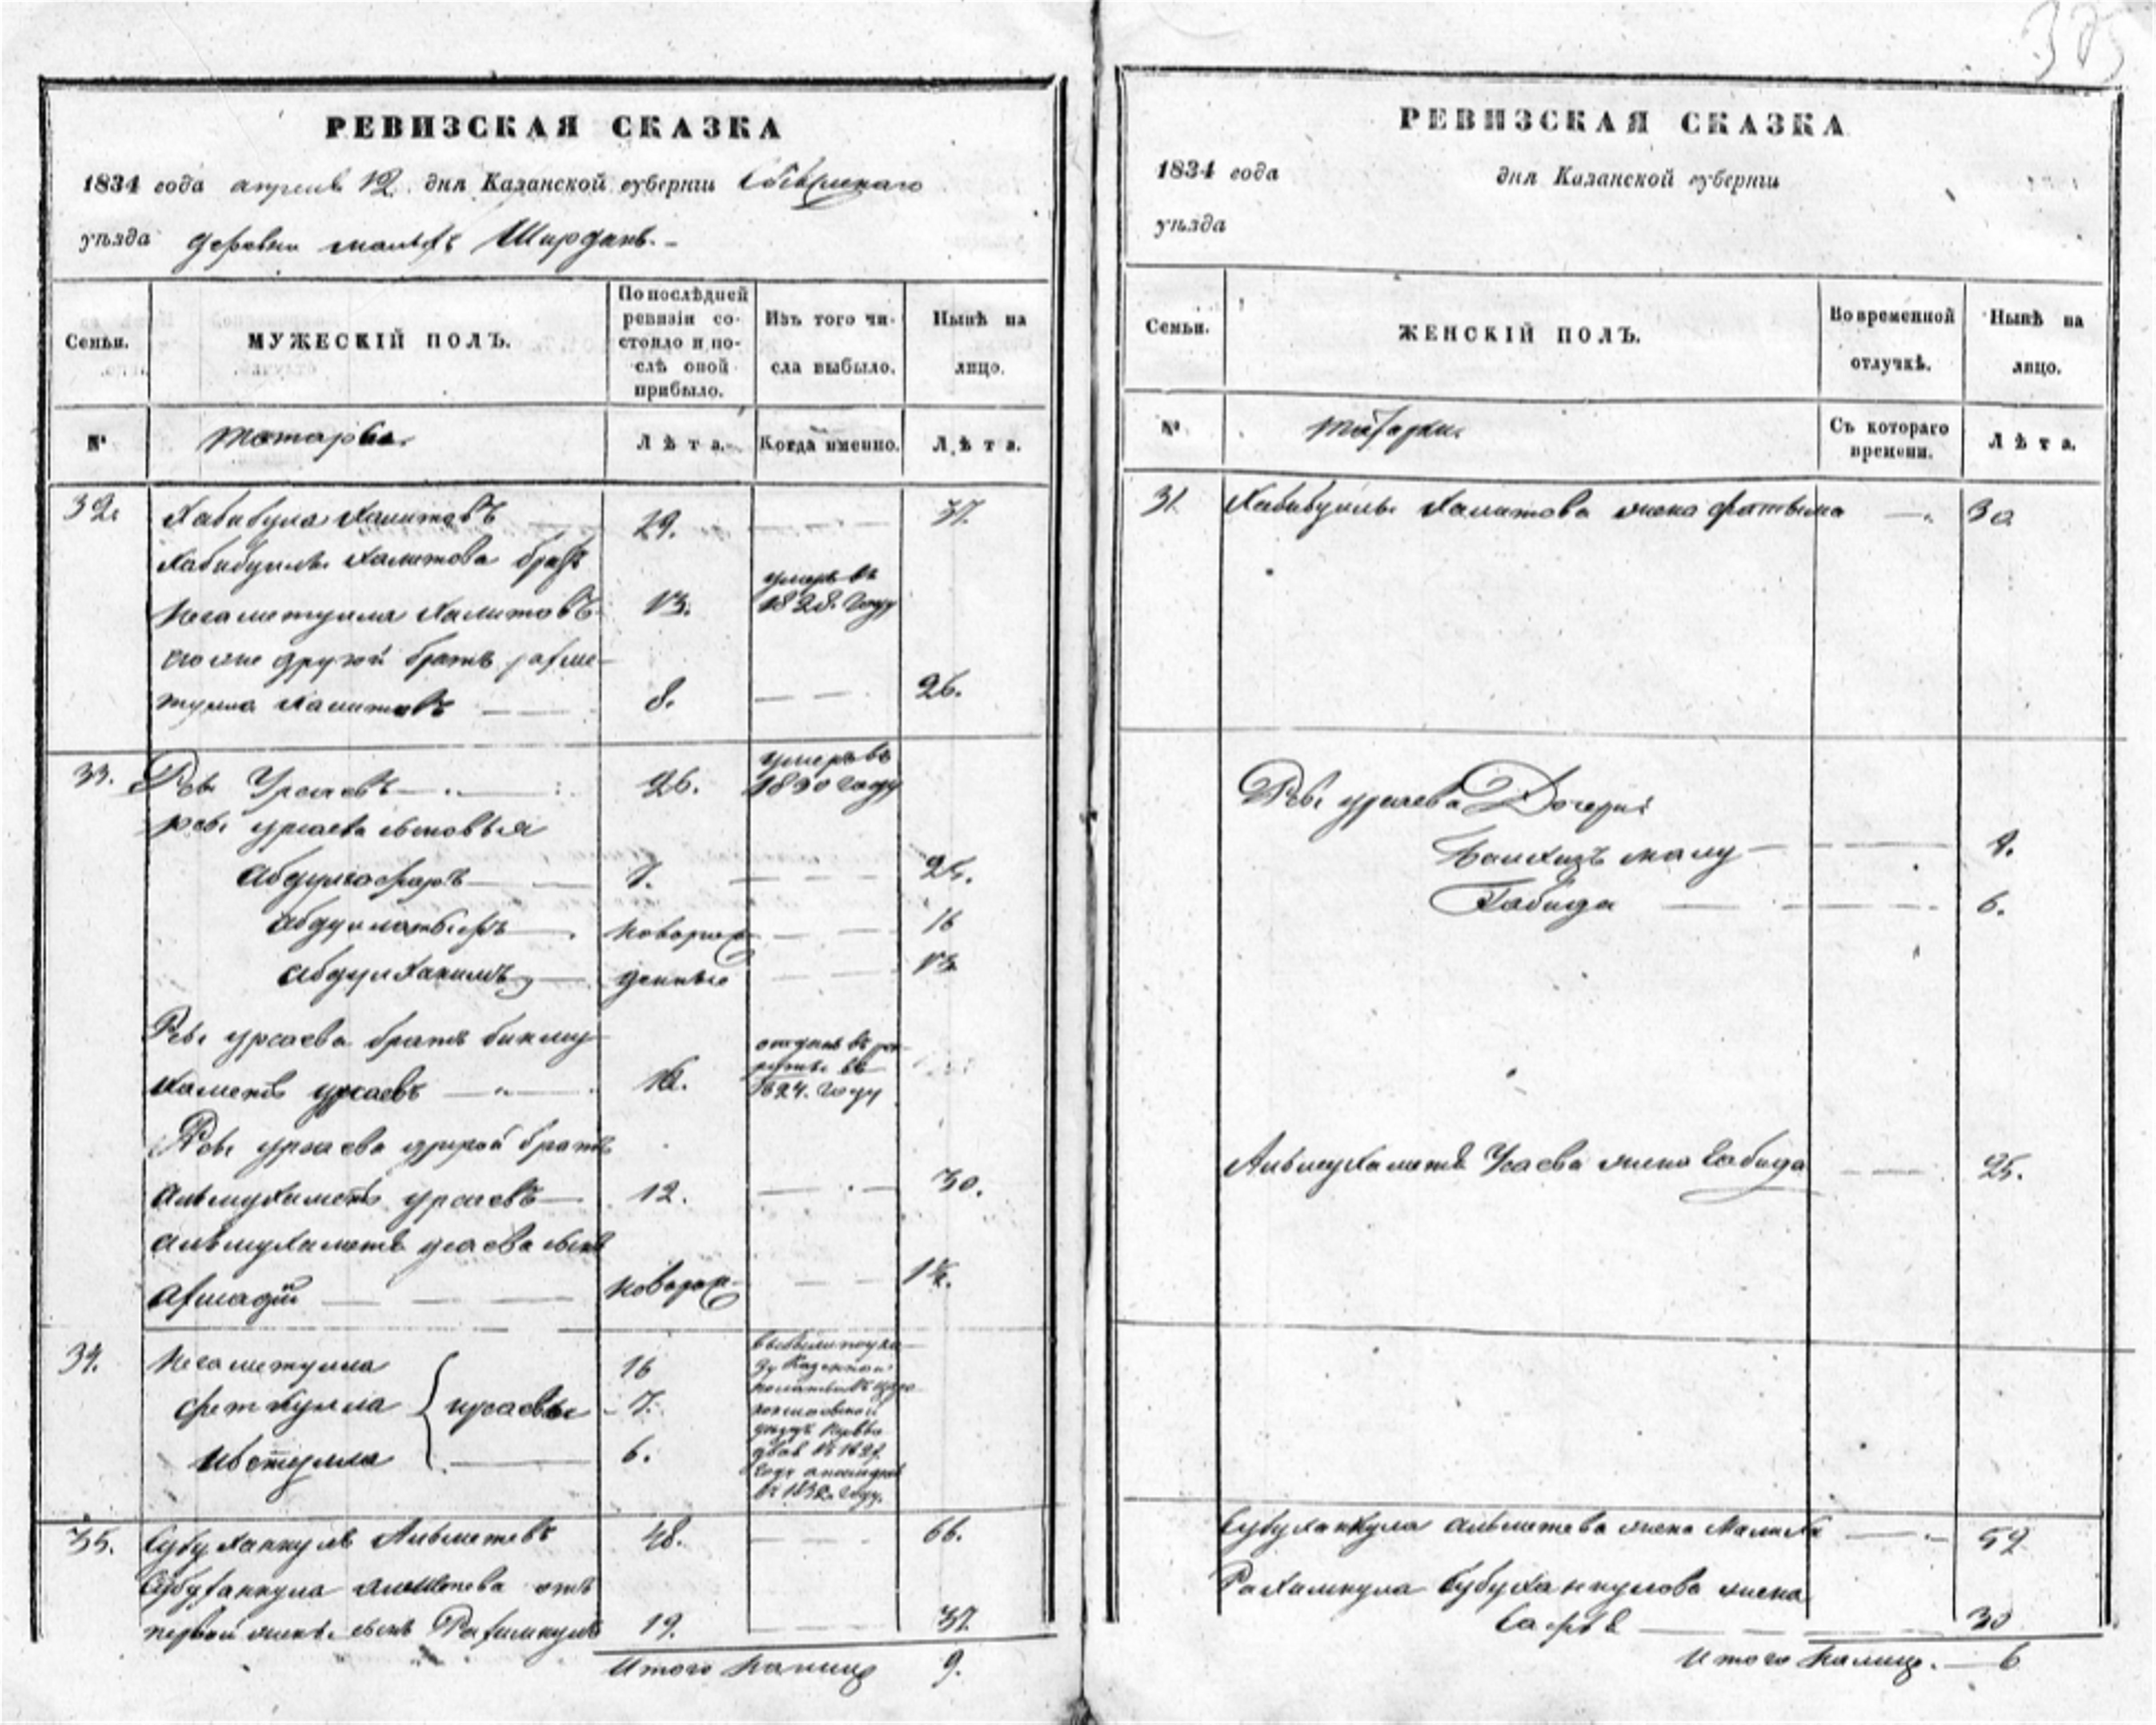 375
РЕВИЗСКАЯ СКАЗКА
1834 года апреля 12 дня Казанской губернiи Свiяжскаго
уѣзда деревни малыхъ Ширданъ.
Семьи. МУЖЕСКIЙ ПОЛЪ. По послѣдней ревизiи состояло и послѣ оной прибыло. Изъ того числа выбыло. Нынѣ на лицо.
№ татары. Лѣта. Когда именно. Лѣта.
32. Хабибула Халитовъ 29. 37.
Хабибуллы Халитова братъ
Негаметулла Халитовъ 13. умеръ въ 1828. году
его же другой братъ рахме-
тулла Халитовъ 8. 26.
33. Ребе Усаевъ 26. умеръ въ 1830 году
ребе усаева сыновья
Абдулгафаръ 7. 25.
Абдуллатыфъ новорож 16
Абдулхакимъ денные 13
Ребе усаева братъ бикму
хаметъ усаевъ 16. отданъ въ рекруты въ 1824. году
Ребе усаева другой братъ
Альмухаметъ усаевъ 12. 30.
Альмухаметъ усаева сынъ
Ахмадiй новорож 1½.
34. Негаметулла 16
фетхулла усаевы 7.
Ибетулла 6.
35. Субуханкулъ Альметевъ 48. 66.
Субуханкула Альметева отъ
первой жены сынъ Рахимкулъ 19. 37.
Итого налицо 9.
РЕВИЗСКАЯ СКАЗКА
1834 года дня Казанской губернiи
уѣзда
Семьи. ЖЕНСКIЙ ПОЛЪ. Во временной отлучкѣ. Нынѣ на лицо.
№ татарки. Съ котораго времени. Лѣта.
31. Хабибуллы Халитова жена фатыма 30
Ребе усаева Дочери:
9.
Габида 6.
Альмухаметъ Усаева жена Сабида 25.
Субуханкула Альметева жена Малиха 52
Рахимкула Субуханкулова жена
30
Итого налицо. 6